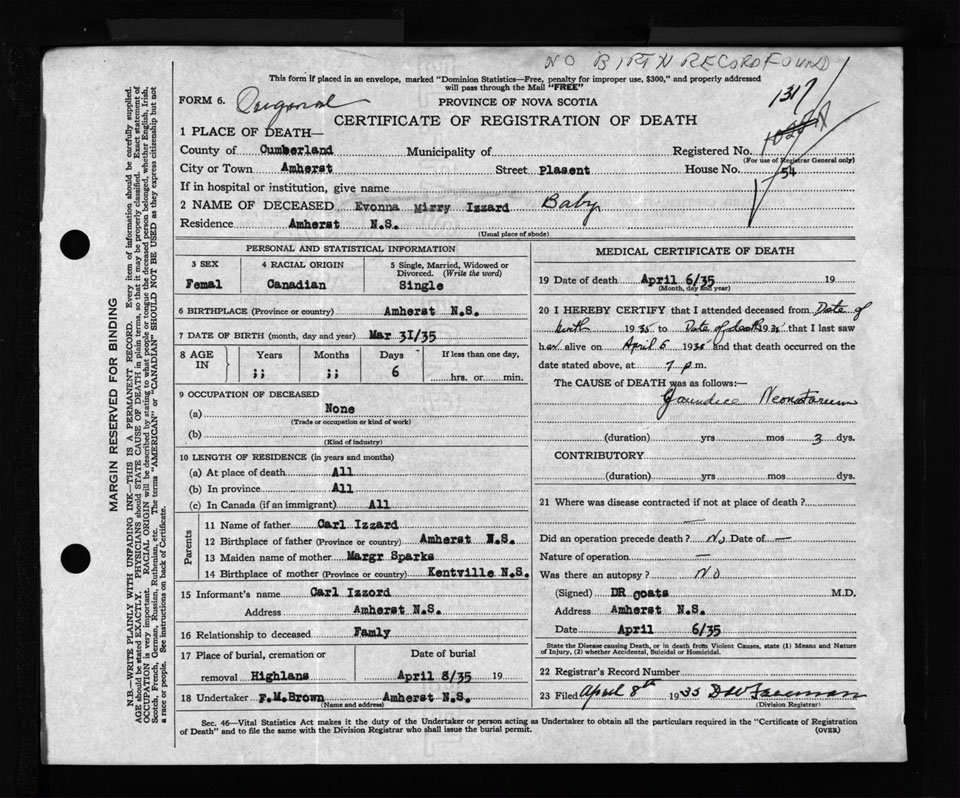 NO BIRTH RECORD FOUND
This form if placed in an envelope, marked "Dominion Statistics—Free, penalty for improper use, $300," and properly addressed
will pass through the Mail "FREE"
FORM 6.
PROVINCE OF NOVA SCOTIA
1317
CERTIFICATE OF REGISTRATION OF DEATH
1 PLACE OF DEATH—
County of Cumberland Municipality of Registered No.
(For use of Registrar General only)
City or Town Amherst Street Plasent House No. 54
If in hospital or institution, give name
2 NAME OF DECEASED Evonna Mirry Izzard Baby
Residence Amherst N.S.
(Usual place of abode)
PERSONAL AND STATISTICAL INFORMATION
3 SEX 4 RACIAL ORIGIN 5 Single, Married, Widowed or
Divorced. (Write the word)
Femal Canadian Single
6 BIRTHPLACE (Province or country) Amherst N.S.
7 DATE OF BIRTH (month, day and year) Mar 3I/35
8 AGE IN Years Months Days If less than one day,
;; ;; 6 hrs. or min.
9 OCCUPATION OF DECEASED
(a) None
(Trade or occupation or kind of work)
(b)
(Kind of industry)
10 LENGTH OF RESIDENCE (in years and months)
(a) At place of death All
(b) In province All
(c) In Canada (if an immigrant) All
Parents
11 Name of father Carl Izzard
12 Birthplace of father (Province or country) Amherst N.S.
13 Maiden name of mother Margr Sparks
14 Birthplace of mother (Province or country) Kentville N.S.
15 Informant's name Carl Izzord
Address Amherst N.S.
16 Relationship to deceased Famly
17 Place of burial, cremation or Date of burial
removal Highlans April 8/35 19
18 Undertaker F.M.Brown Amherst N.S.
(Name and address)
MEDICAL CERTIFICATE OF DEATH
19 Date of death April 6/35 19
(Month, day and year)
20 I HEREBY CERTIFY that I attended deceased from Date of
birth 1935 to Date of death 1935 that I last saw
her alive on April 6 1935 and that death occurred on the
date stated above, at 7 p.m.
The CAUSE OF DEATH was as follows:—
Jaundice
(duration) yrs mos 3 dys.
CONTRIBUTORY
(duration) yrs mos dys.
21 Where was disease contracted if not at place of death?
—
Did an operation precede death? No Date of —
Nature of operation —
Was there an autopsy? NO
(Signed) DR coats M.D.
Address Amherst N.S.
Date April 6/35
State the Disease causing Death, or in death from Violent Causes, state (1) Means and Nature
of Injury, (2) whether Accidental, Suicidal or Homicidal.
22 Registrar's Record Number
23 Filed April 8th 1935
(Division Registrar)
Sec. 46—Vital Statistics Act makes it the duty of the Undertaker or person acting as Undertaker to obtain all the particulars required in the "Certificate of Registration
of Death" and to file the same with the Division Registrar who shall issue the burial permit.
(OVER)
MARGIN RESERVED FOR BINDING
N.B.—WRITE PLAINLY WITH UNFADING INK—THIS IS A PERMANENT RECORD. Every item of information should be carefully supplied.
AGE should be stated EXACTLY. PHYSICIANS should STATE CAUSE OF DEATH in plain terms, so that it may be properly classified. Exact statement of
OCCUPATION is very important. RACIAL ORIGIN will be described by stating to what people or tongue the deceased person belonged, whether English, Irish,
Scotch, French, German, Russian, Ruthenian, etc. The terms "AMERICAN" or "CANADIAN" SHOULD NOT BE USED as they express citizenship but not
a race or people. See instructions on back of Certificate.